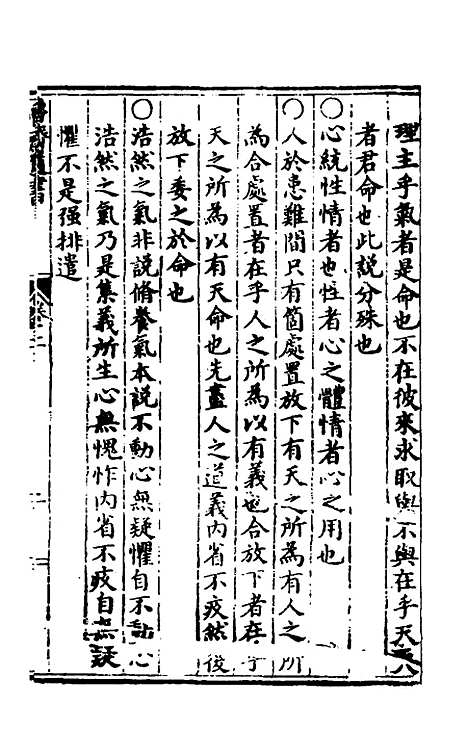 理主乎氣者是命也不在彼來求取與不與在乎天與人
者君命也此説分殊也
○心統性情者也性者心之體情者心之用也
○人於患難間只有箇處置放下有天之所為有人之所
為合處置者在乎人之所為以有義也合放下者在乎
天之所為以有天命也先盡人之道義内省不疚然後
放下委之於命也
○浩然之氣非説脩養氣本説不動心無疑懼自不動心
浩然之氣乃是集義所生心無愧怍内省不疚自無疑
懼不是强排遣
魯齋遺書
卷之二